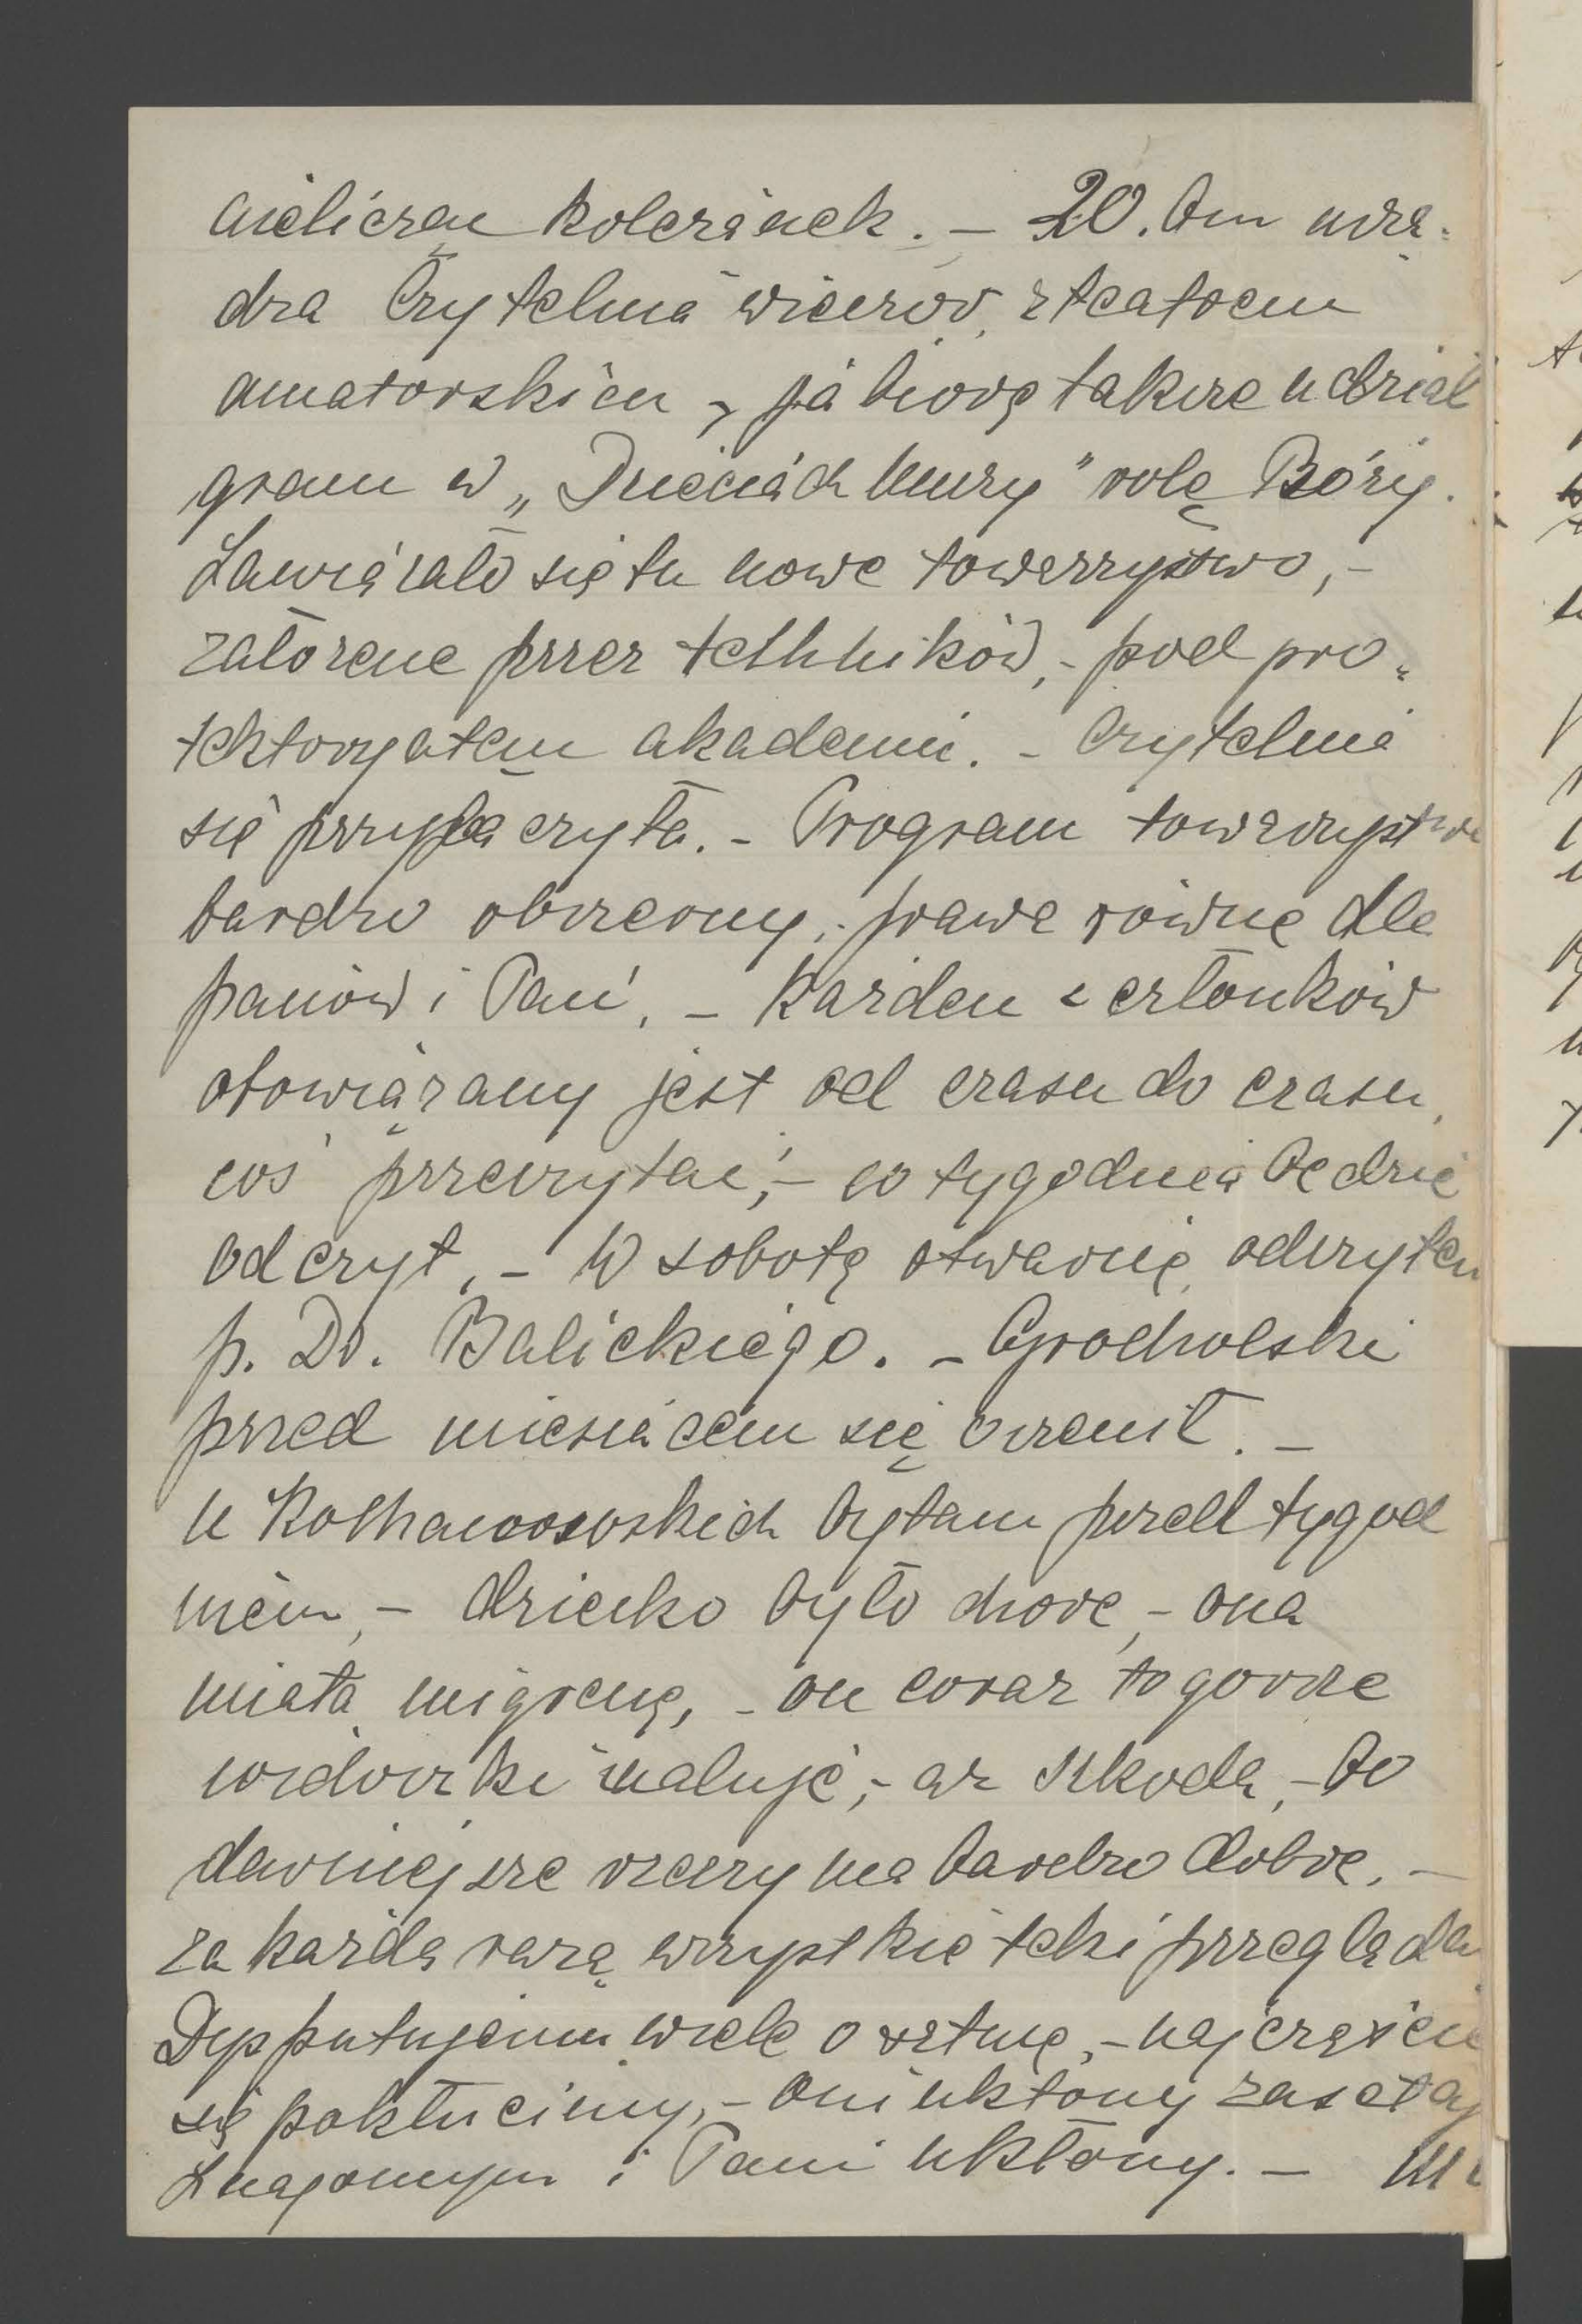 nieliczną koleżanek. – 20. bm urzą-
dza Czytelnia wieczór z teatrem
amatorskiem – ja biorę także udział
gram w „Dzieciach Muzy” rolę Róży.
Zawiązało się tu nowe towarzystwo, –
założene przez techników, – pod pro-
tektoryatem akademii. – Czytelnia
się przyłączyła. – Program towarzystwa
bardzo obszerny, – prawa równe dla
panów i Pań, – Każden z członków
obowiązany jest od czasu do czasu
coś przeczytać, – co tygodnia będzie
odczyt, – W sobotę otwarcie odczytem
p. Dr. Balickiego. – Grocholski
przed miesiącem się ożenił. –
U Kochanowskich byłam przed tygod
niem, – dziecko było chore, – ona
miała migrenę, – on coraz to gorsze
widoczki maluje, – aż szkoda, – bo
dawniejsze rzeczy ma bardzo dobre. –
za każdą razą wszystkie teki przeglądam
Dysputujemy wiele o sztuce, – najczęściej
się pokłócimy, – Oni ukłony
Znajomym i Pani ukłony. –